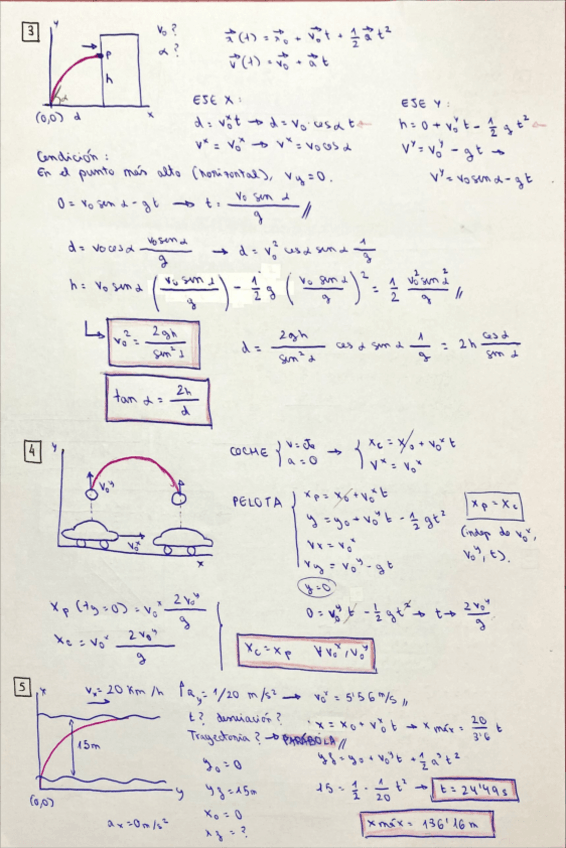 3
y
v₀ ?
α ?
x⃗(t) = x⃗₀ + v⃗₀t + 1/2 a⃗ t²
v⃗(t) = v⃗₀ + a⃗ t
P
h
α
(0,0) d x
EJE X :
d = v₀ˣ t → d = v₀ · cos α t
vˣ = v₀ˣ → vˣ = v₀ cos α
EJE Y :
h = 0 + v₀ʸ t - 1/2 g t²
vʸ = v₀ʸ - gt →
vʸ = v₀ sen α - gt
Condición :
En el punto más alto (horizontal), vy = 0.
0 = v₀ sen α - gt → t = v₀ sen α / g //
d = v₀ cos α v₀ sen α / g → d = v₀² cos α sen α 1/g
h = v₀ sen α (v₀ sen α / g) - 1/2 g (v₀ sen α / g)² = 1/2 v₀² sen² α / g //
v₀² = 2gh / sen² α
d = 2gh / sen² α cos α sen α 1/g = 2h cos α / sen α
tan α = 2h / d
4
y
v₀ʸ
v₀ˣ
x
COCHE { v = cte → { xc = x₀ + v₀ˣ t
a = 0 vˣ = v₀ˣ
PELOTA { xp = x₀ + v₀ˣ t
y = y₀ + v₀ʸ t - 1/2 g t²
vx = v₀ˣ
vy = v₀ʸ - gt
xp = xc
(indep de v₀ˣ,
v₀ʸ, t).
y = 0
0 = v₀ʸ t - 1/2 g t² → t → 2v₀ʸ / g
xp (ty=0) = v₀ˣ 2v₀ʸ / g
xc = v₀ˣ 2v₀ʸ / g
xc = xp ∀ v₀ˣ, v₀ʸ
5
x
vx = 20 Km/h
↑ ay = 1/20 m/s² → v₀ˣ = 5'56 m/s //
15m
y
(0,0)
ax = 0 m/s²
t ? desviación ?
Trayectoria ? → PARÁBOLA //
x = x₀ + v₀ˣ t → x máx = 20/3'6 t
y₀ = 0
yf = 15m
x₀ = 0
xf = ?
yf = y₀ + v₀ʸ t + 1/2 a² t²
15 = 1/2 · 1/20 t² → t = 24'49 s
x máx = 136'16 m